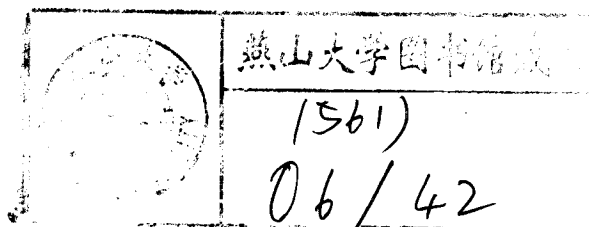 燕山大学图书馆藏
(561)
06/42